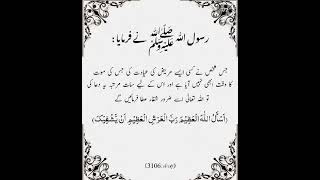 رسول اللہ ﷺ نے فرمایا:
جس شخص نے کسی ایسے مریض کی عیادت کی جس کی موت
کا وقت ابھی نہیں آیا ہے اور اس کے لیے سات مرتبہ یہ دعا کی
تو اللہ تعالیٰ اسے ضرور شفاء عطا فرمائیں گے
(أَسْأَلُ اللهَ الْعَظِيْمَ رَبَّ الْعَرْشِ الْعَظِيْمِ اَنْ يَّشْفِيَكَ)
3106: